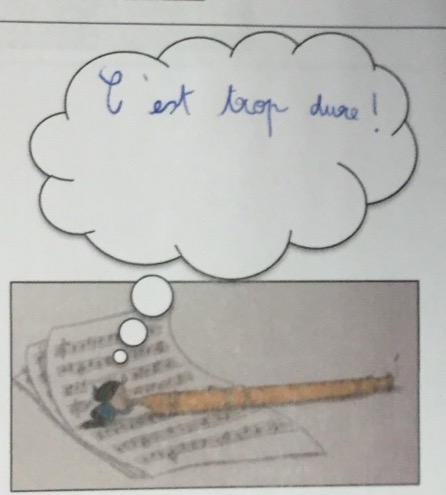 C'est trop dure !